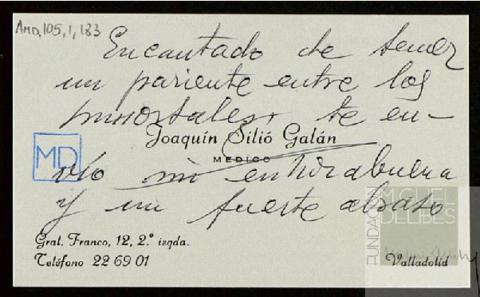 AMD,105,1,183
Encantado de tener
un pariente entre los
inmortales, te en-
Joaquín Silió Galán
MEDICO
MD
vío mi enhorabuena
y un fuerte abrazo
Gral. Franco, 12, 2.° izqda.
Teléfono 22 69 01
Valladolid
FUNDACIÓN
MIGUEL
DELIBES